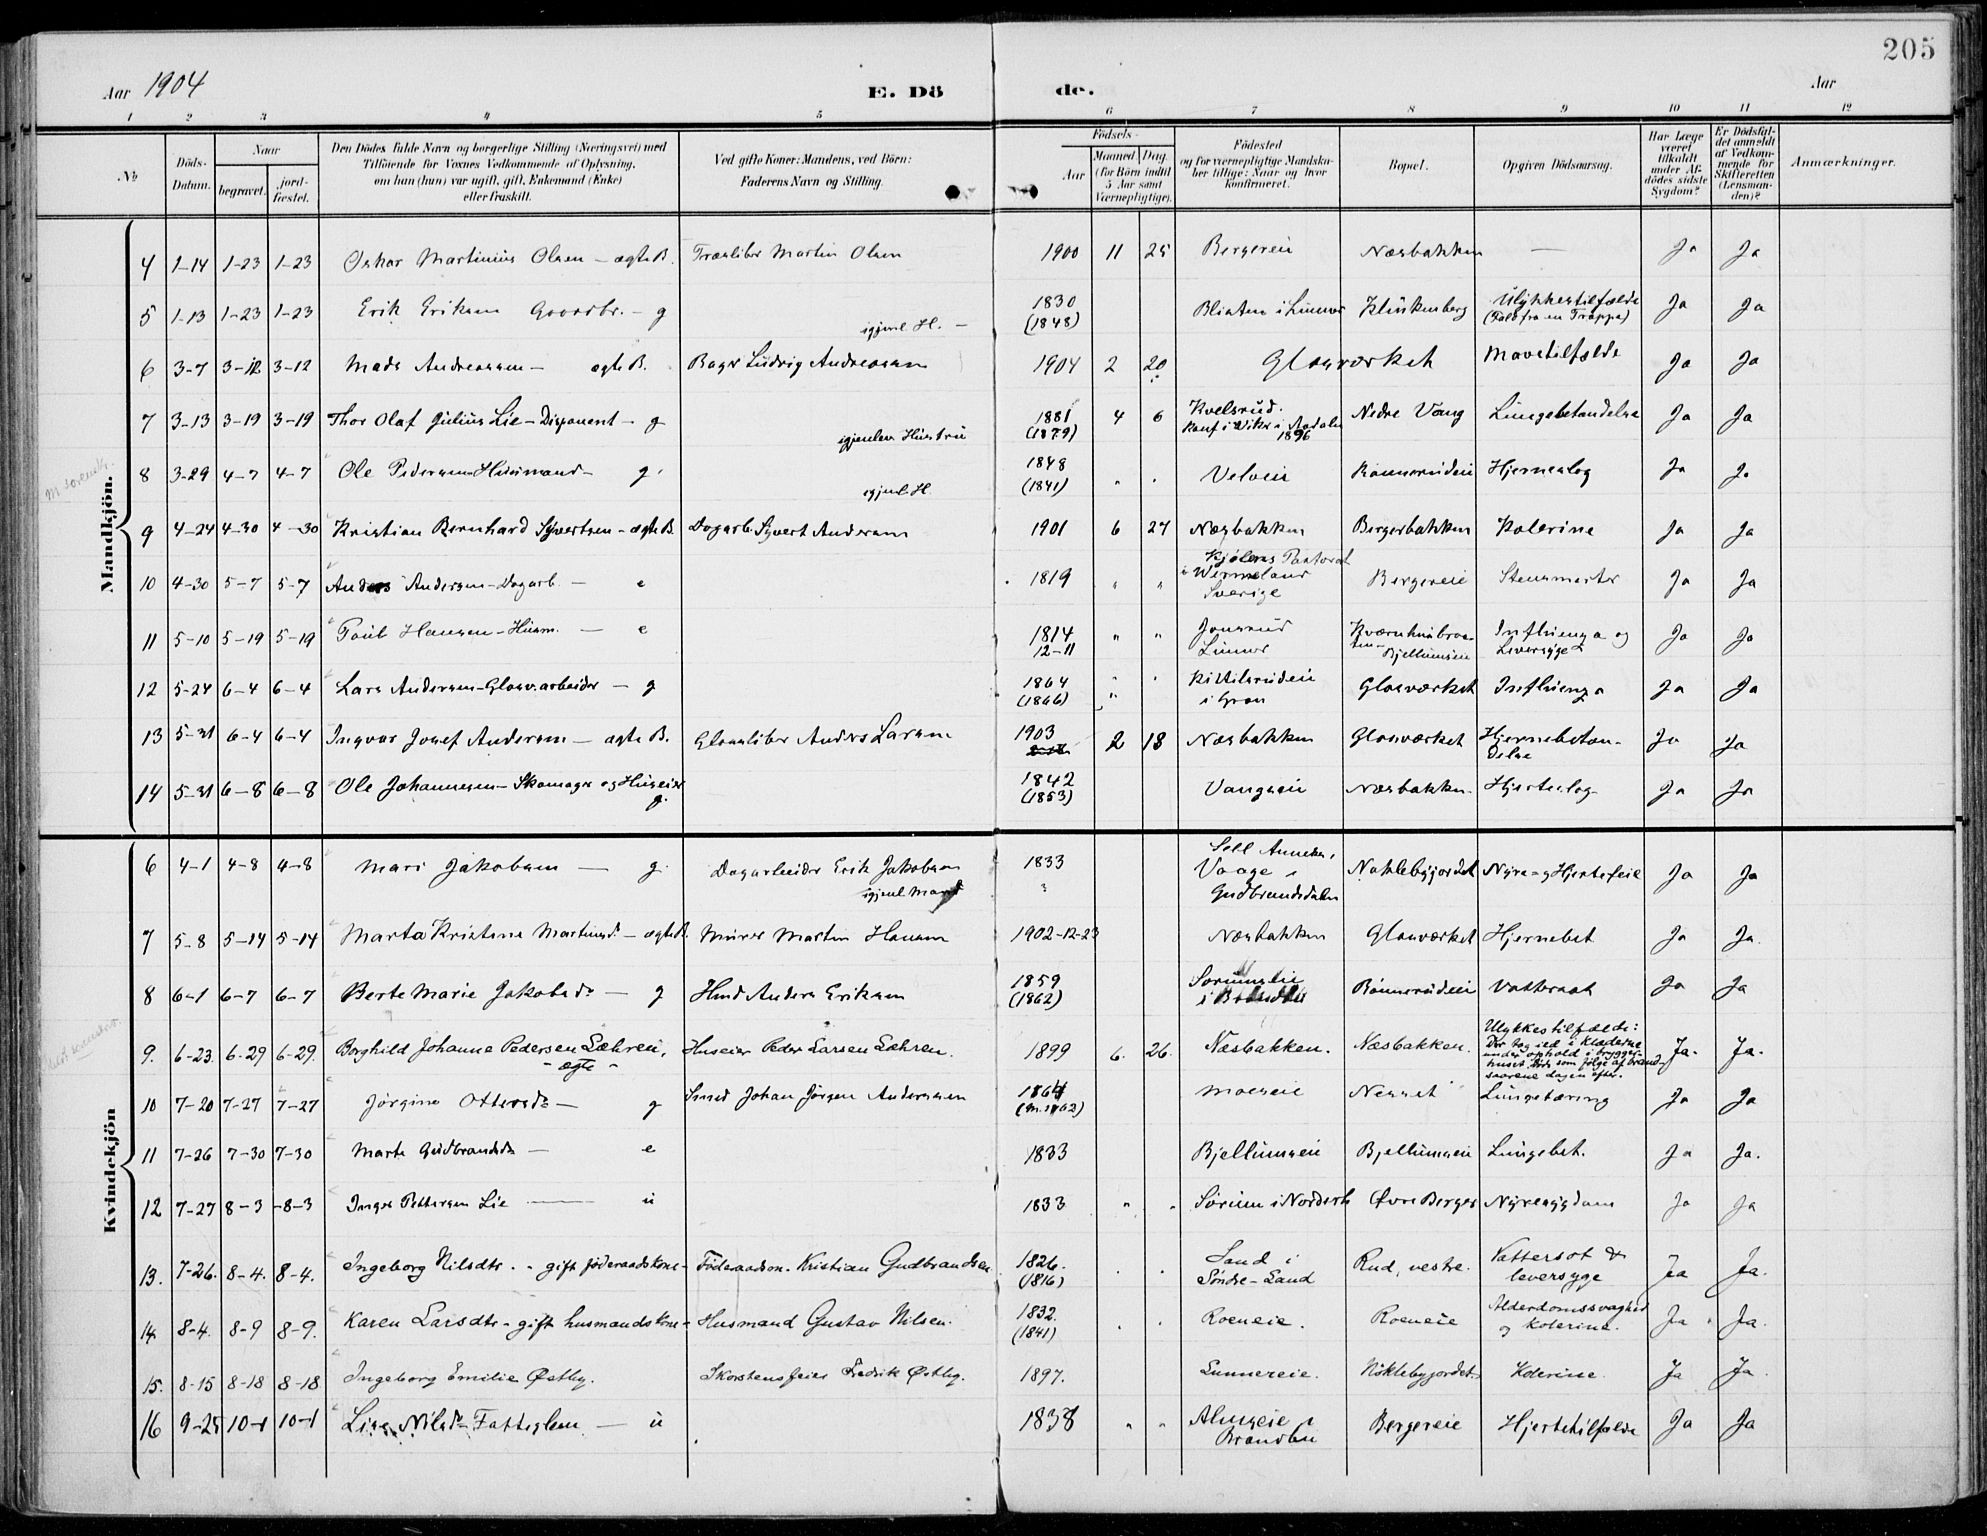 205
Aar 1904 E. Dö de. Aar
1 2 3 4 5 6 7 8 9 10 11 12
No Döds-Datum. Naar begravet. jord-fæstet. Den Dödes fulde Navn og borgerlige Stilling (Næringsvei) med Tilföiende for Voxnes Vedkommende af Oplysning, om han (hun) var ugift, gift, Enkemand (Enke) eller fraskilt. Ved gifte Koner: Mandens, ved Börn: Faderens Navn og Stilling. Födsels- Aar Maaned Dag. (for Börn indtil 5 Aar samt Værnepligtige). Födested og for værnepligtige Mandskaber tillige: Naar og hvor konfirmeret. Bopæl. Opgiven Dödsaarsag. Har Læge været tilkaldt under Afdödes sidste Sygdom? Er Dödsfaldet anmeldt af Vedkommende for Skifteretten (Lensmanden)? Anmærkninger.
Mandkjön.
4 1-14 1-23 1-23 Oskar Martinius Olsen - ægte B. Træsliber Martin Olsen 1900 11 25 Bergereie Næsbakken — Ja Ja
5 1-13 1-23 1-23 Erik Eriksen Gaardbr. - g igjenl. H. - 1830 (1848) i Lunner Klinkenberg Ulykkestilfælde (Fald fra en Trappe) Ja Ja
6 3-7 3-12 3-12 Mads Andreassen - ægte B. Bager Ludvig Andreassen 1904 2 20 Glasværket Mavetilfælde Ja Ja
7 3-13 3-19 3-19 Thor Olaf Julius Lie - Disponent - g igjenlev. Hustru 1881 (1879) 4 6 Kvelsrud. Konf i Viker i Aadalen 1896 Nedre Vang Lungebetændelse Ja Ja
8 3-29 4-7 4-7 Ole Pedersen Husmand - g. igjenl. H. 1848 (1841) " " Velseie Rönnerudeie Hjerneslag Ja Ja
9 4-24 4-30 4-30 Kristian Bernhard Syvertsen - ægte B. Dagarb. Syvert Andersen 1901 6 27 Næsbakken Bergerbakken Kolerine Ja Ja
10 4-30 5-7 5-7 Anders Andersen - Dagarb. - e 1819 " " Kjölens Pastorat i Wermeland Sverige Bergereie Stensmerter Ja Ja
11 5-10 5-19 5-19 Poul Hansen - Husm. - e 1814 12-11 " " Jonsrud Lunner Bjellumseie Influenza og Leversyge Ja Ja
12 5-24 6-4 6-4 Lars Andersen - Glasv.arbeider - g 1864 (1866) " " Kittilsrudeie i Gran Glasværket Influenza Ja Ja
13 5-31 6-4 6-4 Ingvar Josef Andersen - ægte B. Glassliber Anders Larsen 1903 2 18 Næsbakken Glasværket Hjernebetændelse Ja Ja
14 5-31 6-8 6-8 Ole Johannesen - Skomager og Huseier g. 1842 (1853) Vangseie Næsbakken Hjerteslag Ja Ja
Kvindekjön
6 4-1 4-8 4-8 Mari Jakobsen - g. Dagarbeider Erik Jakobsen igjenl Mand 1833 Sell Anneks, Vaage, Gudbrandsdalen Nøklebyjordet Nyre- og Hjertefeil Ja Ja
7 5-8 5-14 5-14 Marta Kristine Martinsd. - ægte B. Murer Martin Hansen 1902-12-23 Næsbakken Glasværket Hjernebet. Ja Ja.
8 6-1 6-7 6-7 Berte Marie Jakobsd. - g Hmd Anders Eriksen 1859 (1862) Sorumseie i Brandbu Rönnerudeie Vattersot Ja Ja
9. 6-23. 6-29 6-29. Borghild Johanne Pedersen Læhren, - ægte - Huseier Peder Larsen Læhren. 1899 6. 26. Næsbakken. Næsbakken. Ulykkestilfælde: Der tog ild i klæderne under ophold i bryggerhuset. Døde som følge af brandsaarene dagen efter. Ja. Ja.
10 7-20 7-27 7-27 Jørgine Ottersd. - g Smed Johan Jörgen Anderssen 1864 (m. 1862) Moeseie Nesset Lungetæring Ja Ja
11 7-26 7-30 7-30 Marte Gudbrandsd. - e 1833 Bjellumseie Bjellumseie Lungebet. Ja Ja.
12 7-27 8-3 -8-3 Inger Pettersen Lie - u 1833 " " Sörum i Norderh. Øvre Berger Nyresygdom Ja Ja
13. 7-26. 8-4. 8-4. Ingeborg Nilsdtr. - gift föderaadskone - Föderaadsm. Kristian Gudbrandsen 1826. (1816) . . Land i Søndre-Land Rud, vestre. Vattersot & leversyge Ja Ja.
14. 8-4. 8-9 8-9. Karen Larsdtr - gift husmandskone - Husmand Gustav Nilsen. 1832. (1841) . . Roeneie. Roeneie Alderdomssvaghed og kolerine. Ja Ja.
15. 8-15 8-18 8-18 Ingeborg Emilie Østby. Skorstensfeier Fredrik Østby. 1897. Lunnereie. Nøklebyjordet. Kolerine. Ja Ja.
16 9-25 10-1 10-1 Lise Nilsd. Fattiglem - u 1838 " " Almseie, Brandbu Bergereie Hjertetilfælde Ja Ja